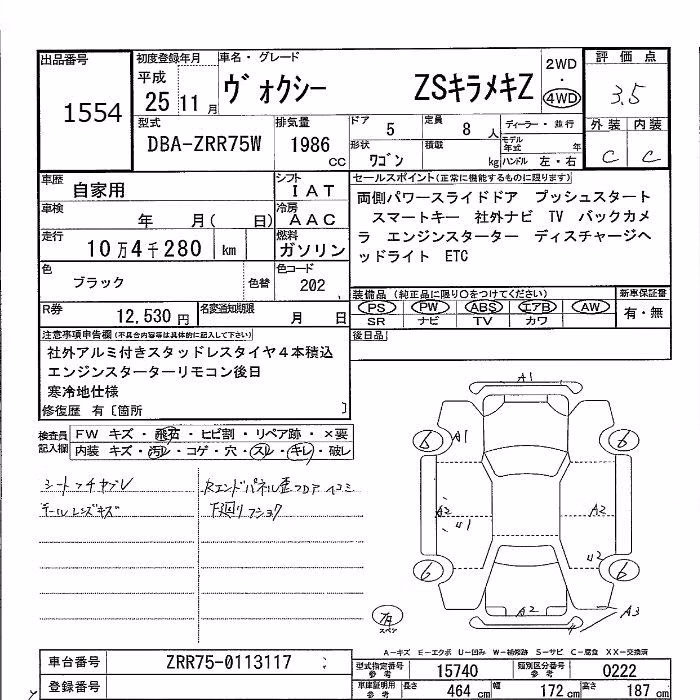 出品番号 1554
初度登録年月 平成 25 11 月
車名・グレード ヴォクシー ZSキラメキZ
2WD ・ 4WD
評価点 3.5
外装 C 内装 C
型式 DBA-ZRR75W
排気量 1986 cc
ドア 5
定員 8 人
ディーラー・並行
形状 ワゴン
積載 kg
モデル年式 年
ハンドル 左・右
車歴 自家用
シフト IAT
車検 年 月( 日)
冷房 AAC
走行 10万4千280 km
燃料 ガソリン
色 ブラック 色替
色コード 202
R券 12,530円
名変通知期限 月 日
セールスポイント(正常に機能するものに限ります)
両側パワースライドドア プッシュスタート
スマートキー 社外ナビ TV バックカメ
ラ エンジンスターター ディスチャージヘ
ッドライト ETC
装備品 (純正品に限り○をつけてください)
PS PW ABS エアB AW
SR ナビ TV カワ
新車保証書 有・無
後日品
注意事項申告欄(不具合内容等は具体的に記入して下さい)
社外アルミ付きスタッドレスタイヤ4本積込
エンジンスターターリモコン後日
寒冷地仕様
修復歴 有〔箇所 〕
検査員記入欄
FW キズ・飛石・ヒビ割・リペア跡・×要
内装 キズ・汚レ・コゲ・穴・スレ・キレ・破レ
シートツチヤブレ
テールレンズキズ
Rエンドパネル歪フロア凹コミ
下廻りフショク
A1
6 A1 6
A2 U1 A2
U2
6 6
A2 A3
スペア
A-キズ E-エクボ U-凹み W-補修跡 S-サビ C-腐食 XX-交換済
車台番号 ZRR75-0113117
登録番号
型式指定番号 参考 15740
類別区分番号 参考 0222
車庫証明用 参考 長さ 464 cm 幅 172 cm 高さ 187 cm